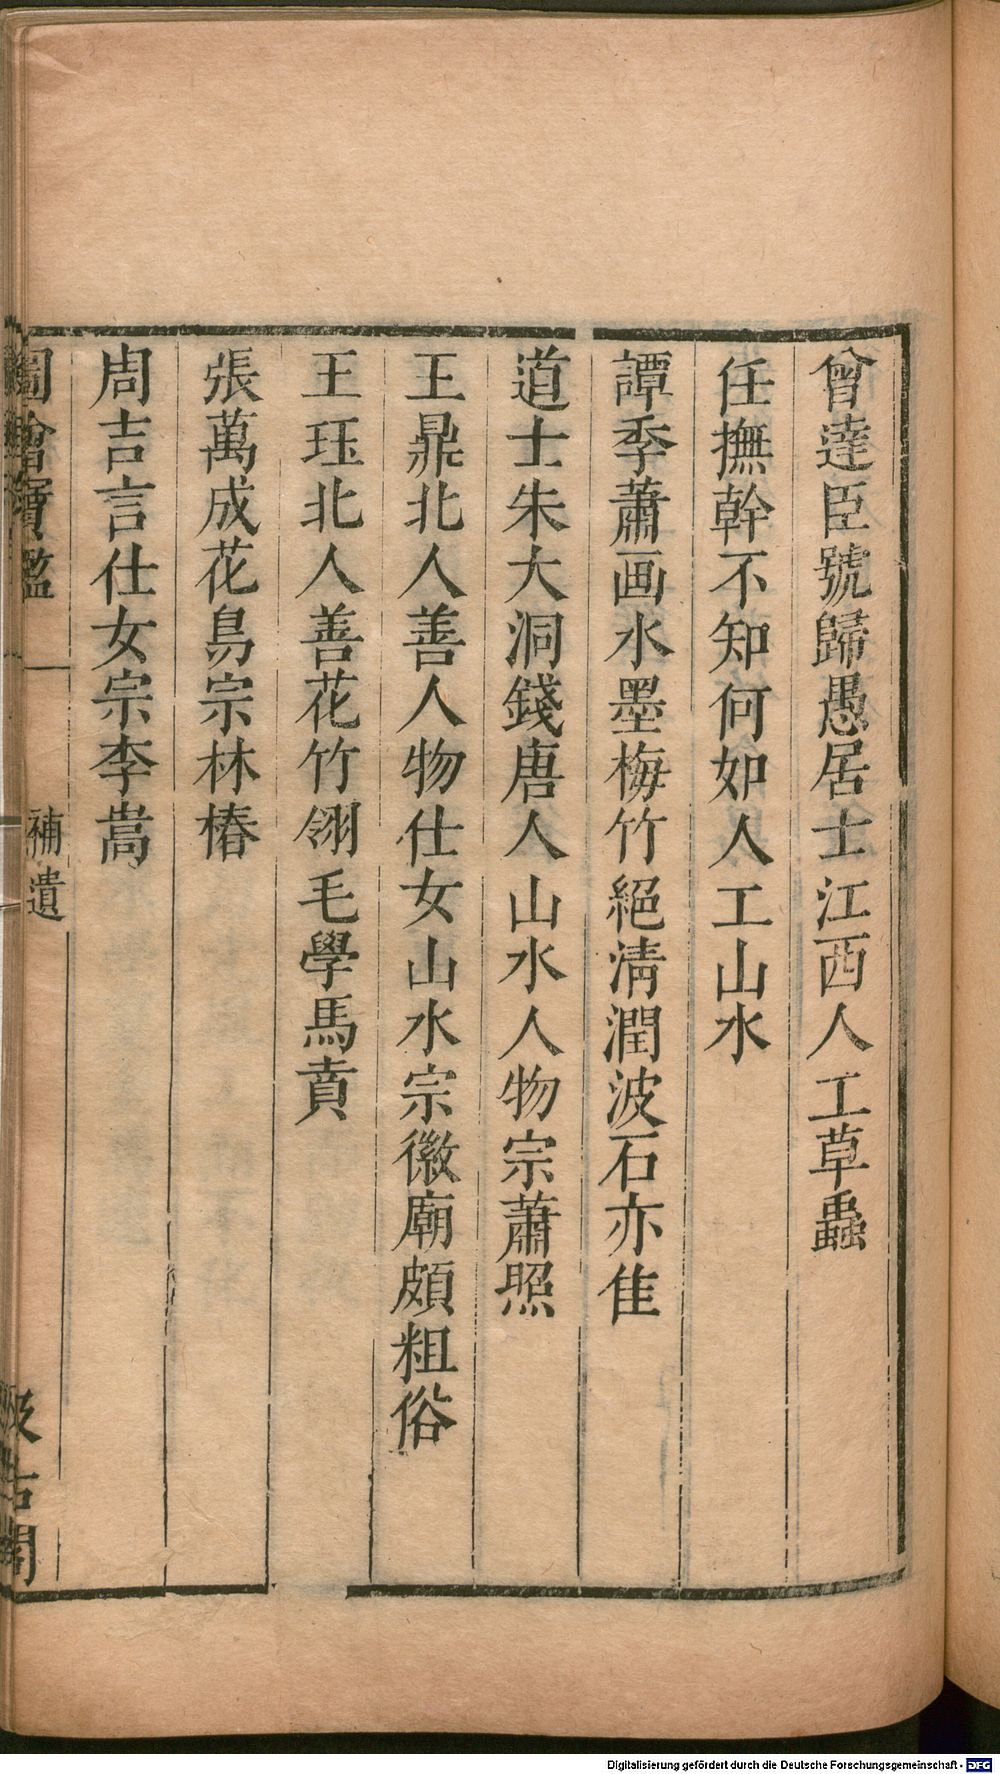 曾達臣號歸愚居士江西人工草蟲
任撫幹不知何如人工山水
譚季蕭画水墨梅竹絕清潤波石亦佳
道士朱大洞錢唐人山水人物宗蕭照
王鼎北人善人物仕女山水宗徽廟頗粗俗
王珏北人善花竹翎毛學馬賁
張萬成花鳥宗林椿
周吉言仕女宗李嵩
圖繪寶鑑
補遺
汲古閣
Digitalisierung gefördert durch die Deutsche Forschungsgemeinschaft - DFG